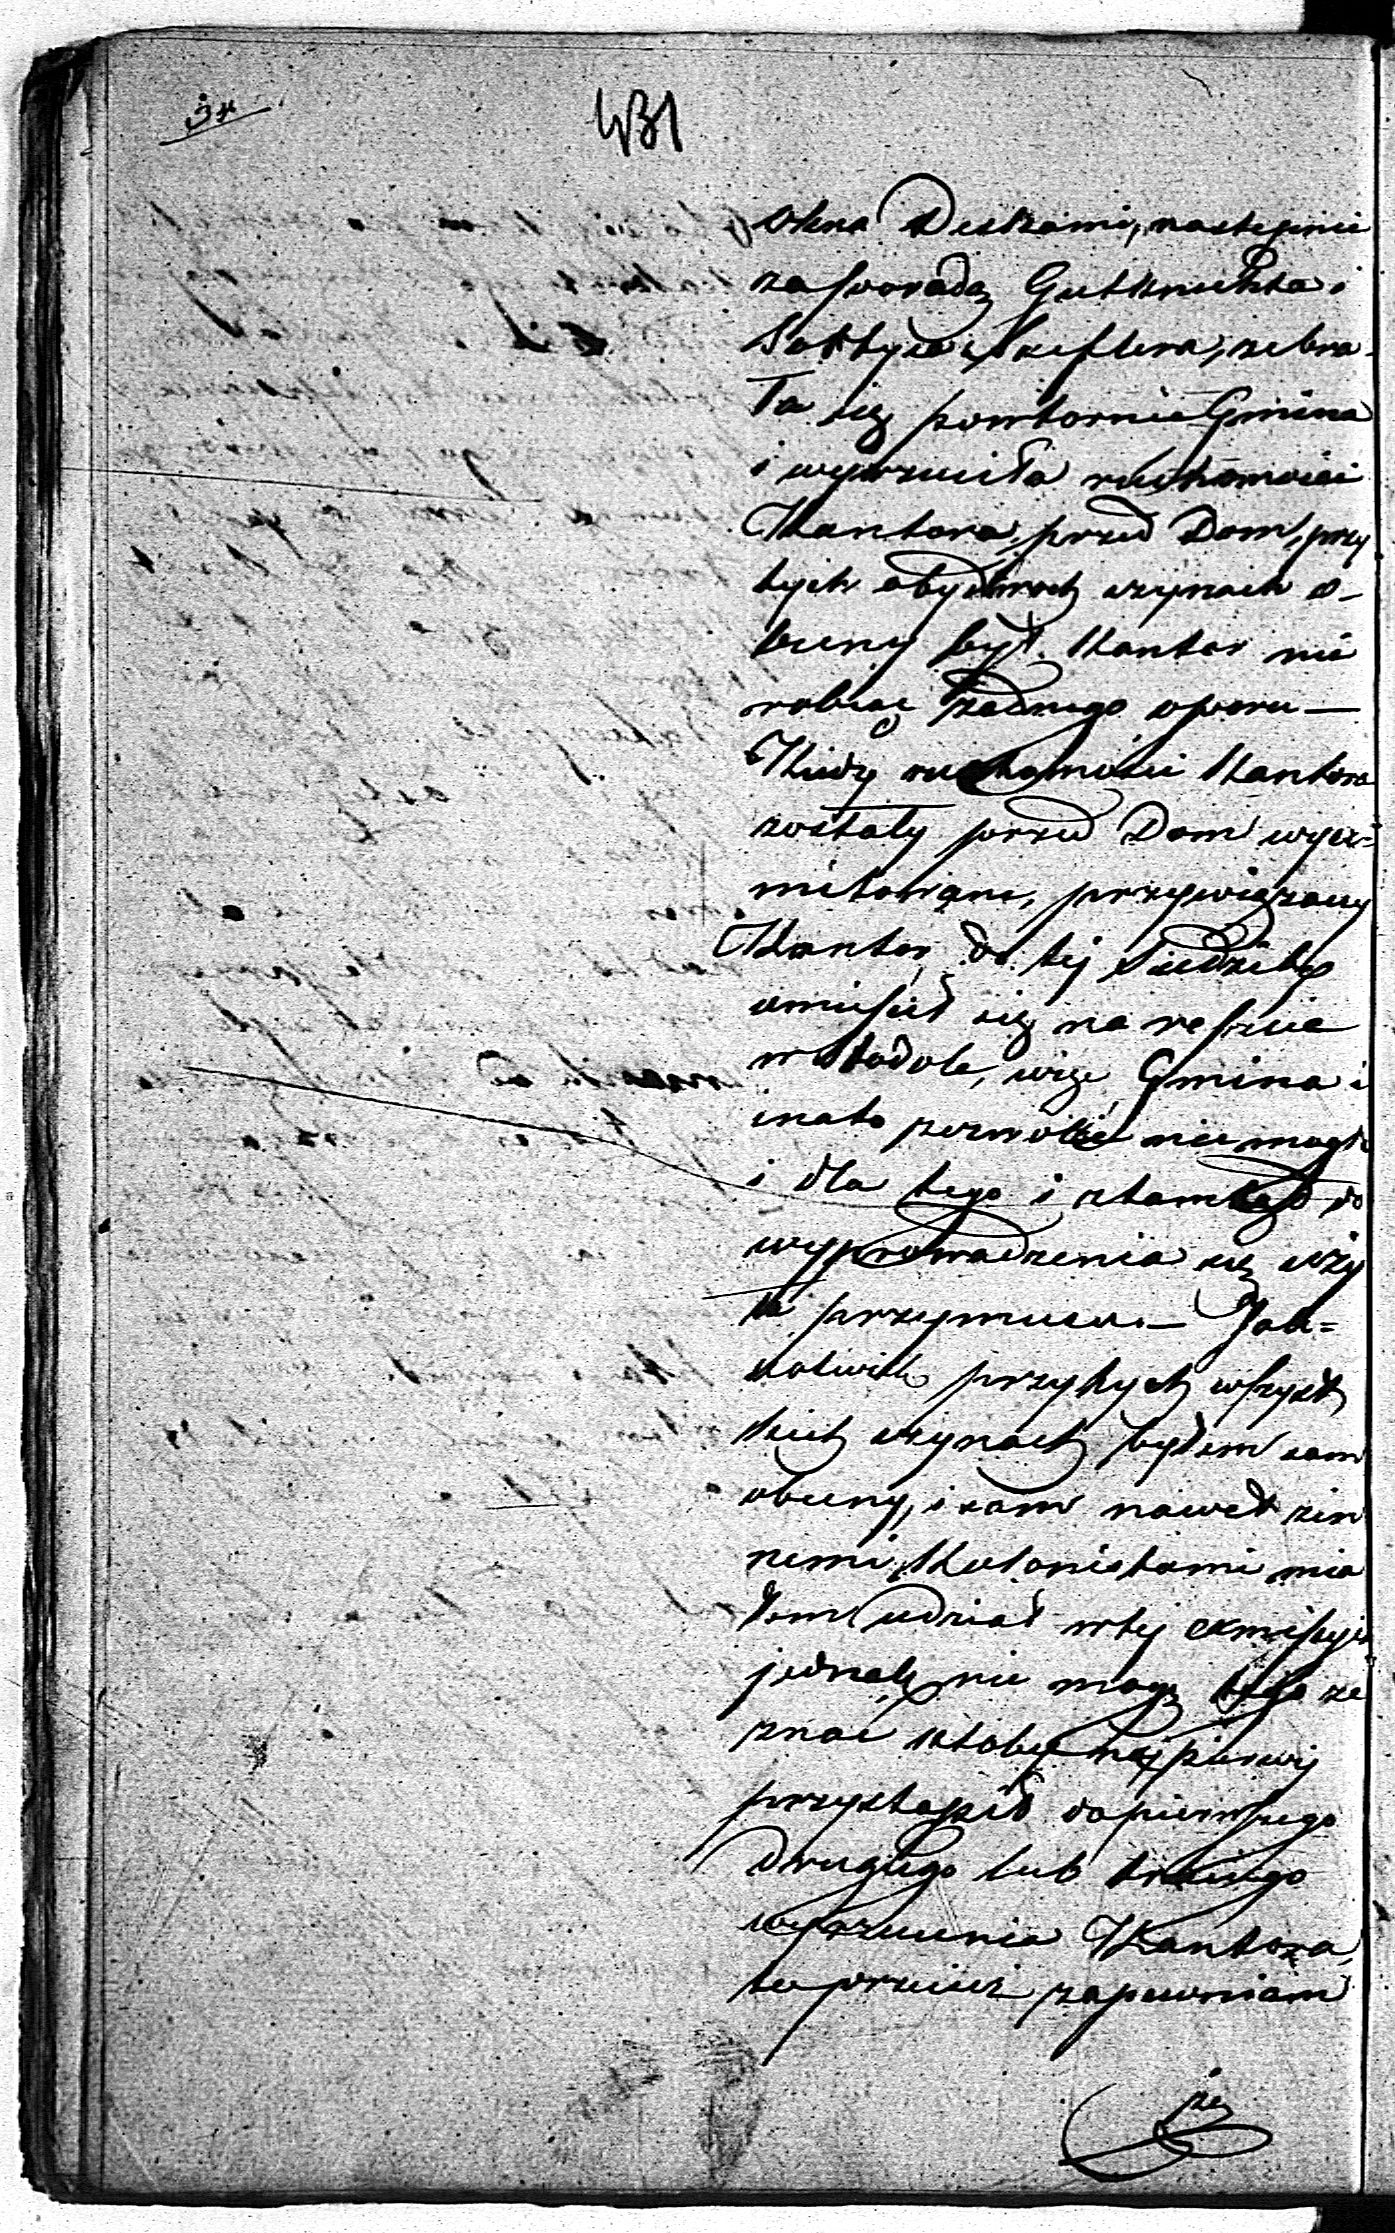 431
okna Deskami, następnie
za poradą Gutknechta i
Sołtysa Szeflera, zebra-
ła się powtornie Gmina
i wyrzuciła ruchomości
Kantora, przed Dom, przy
tych obydwoch czynach o-
becny był Kantor nie
robiąc żadnego oporu —
Kiedy ruchomości Kantora
zostały przed Dom wyex=
mitowane, przywiązany
Kantor do tej siedziby
umieścił się na
w stodole, więc Gmina i
inato pozwolić nie mogła
i dla tego i ztamtąd do
wyprowadzenia się uży
ła przymusu. — Jak=
kolwiek przytych wszyst
kich czynach byłem sam
obecny, i sam nawet zin
nemi Kolonistami mia
łem udział wtej exmissyi
jednak nie mogę tego ze
znać ktoby najpierwej
przystąpił dopierwszego
drugiego lub trzeciego
wyrzucenia Kantora,
to przecież zapewniam
że